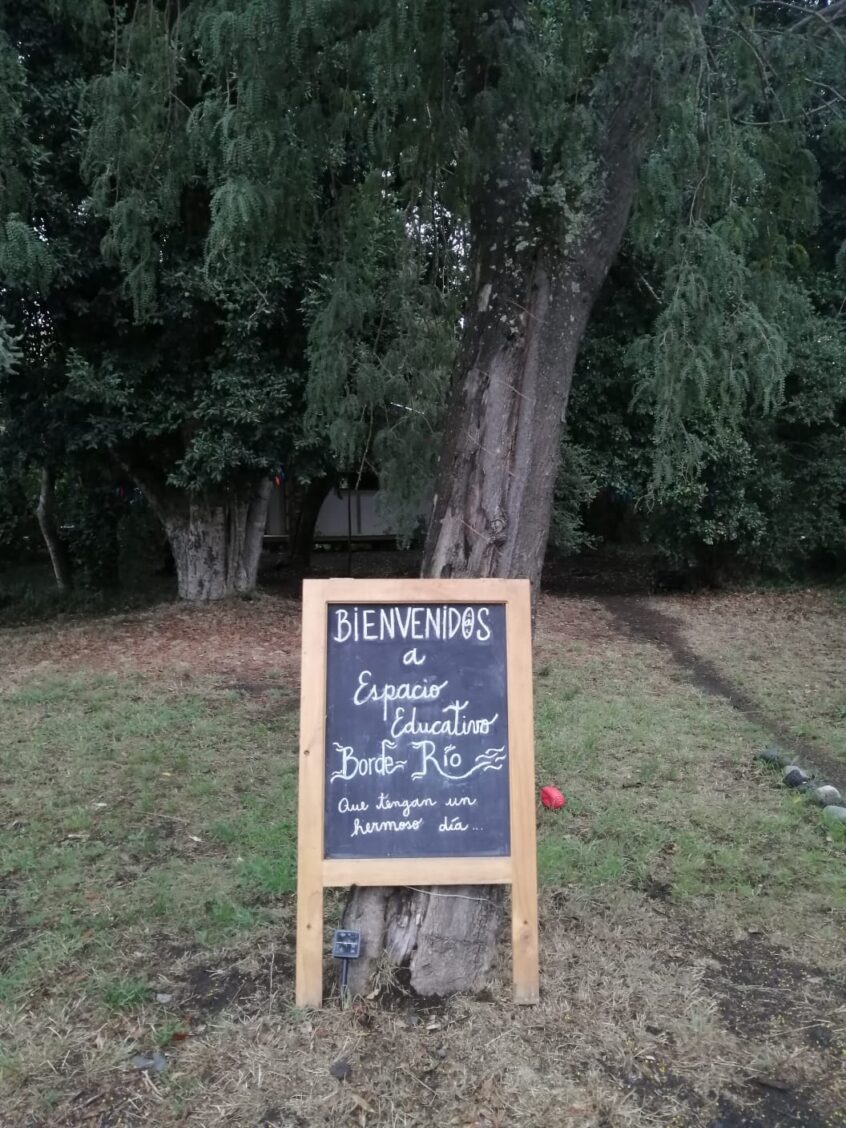 BiENVENidOS
a
Espacio
Educativo
Borde Río
Que tengan un
hermoso día...